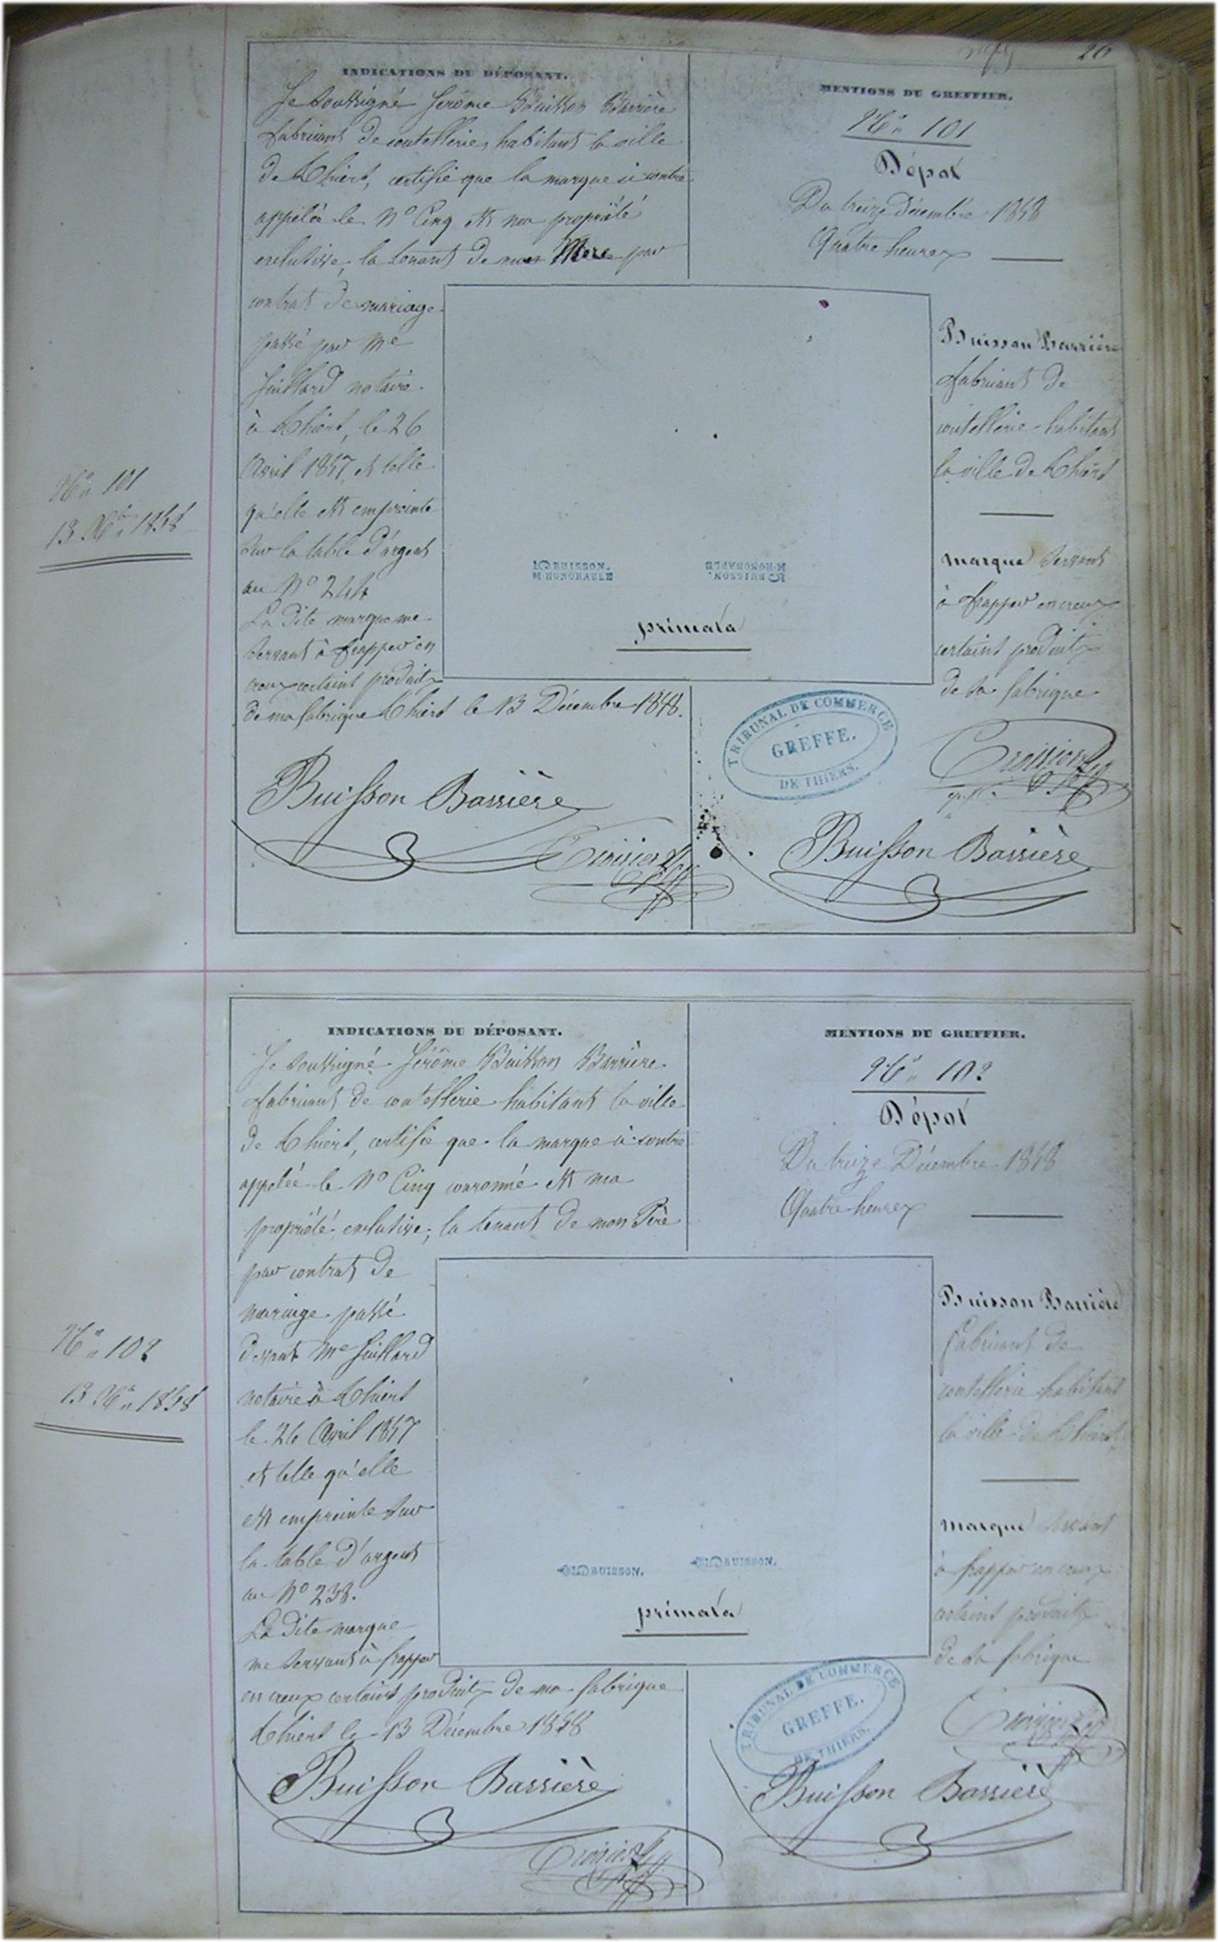 26
INDICATIONS DU DÉPOSANT.
Je soussigné Jérôme Buisson Barrière
fabricant de coutellerie, habitant la ville
de Thiers, certifie que la marque ci contre
appelée le N° Cinq est ma propriété
exclusive, la tenant de mon Mere par
contrat de mariage
passé par Me
notaire
à Thiers, le 26
Avril 1857, et telle
qu'elle est empreinte
sur la table d'argent
au N° 244
La dite marque me
servant à frapper en
creux certains produits
de ma fabrique Thiers le 13 Décembre 1858.
Buisson Barrière
MENTIONS DU GREFFIER.
N° 101
Dépot
Du treize Décembre 1858
Quatre heures
Buisson Barrière
fabricant de
coutellerie habitant
la ville de Thiers
marque servant
à frapper en creux
certains produits
de sa fabrique
TRIBUNAL DE COMMERCE
GREFFE.
DE THIERS.
Buisson Barrière
N° 101
13 Xbre 1858
5 BUISSON.
HONORABLE
5 BUISSON.
HONORABLE
primata
INDICATIONS DU DÉPOSANT.
Je soussigné Jérôme Buisson Barrière
fabricant de coutellerie habitant la ville
de Thiers, certifie que la marque ci contre
appelée le N° Cinq couronné est ma
propriété exclusive, la tenant de mon Père
par contrat de
mariage passé
devant Me
notaire à Thiers
le 26 Avril 1857
et telle qu'elle
est empreinte sur
la table d'argent
au N° 238.
La dite marque
me servant à frapper
en creux certains produits de ma fabrique
Thiers le 13 Décembre 1858
Buisson Barrière
MENTIONS DU GREFFIER.
N° 102
Dépot
Du treize Décembre 1858
Quatre heures
Buisson Barrière
fabricant de
coutellerie habitant
la ville de Thiers
marque servant
à frapper en creux
certains produits
de sa fabrique
TRIBUNAL DE COMMERCE
GREFFE.
DE THIERS.
Buisson Barrière
N° 102
13 Xbre 1858
BUISSON.
BUISSON.
primata